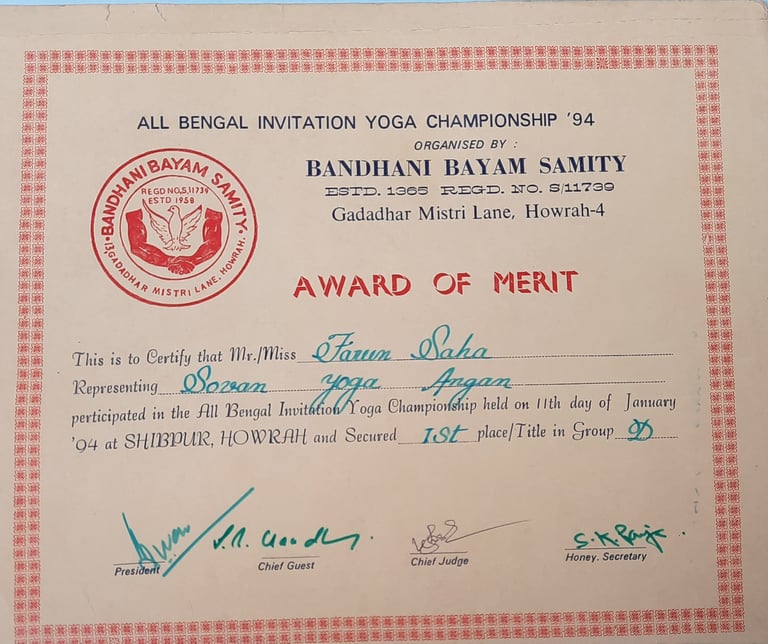 ALL BENGAL INVITATION YOGA CHAMPIONSHIP '94
ORGANISED BY :
BANDHANI BAYAM SAMITY
ESTD. 1365 REGD. NO. S/11739
Gadadhar Mistri Lane, Howrah-4
BANDHANI BAYAM SAMITY
REGD NO.S,11739
ESTD 1958
13,GADADHAR MISTRI LANE, HOWRAH.
AWARD OF MERIT
This is to Certify that Mr./Miss Tarun Saha
Representing Sovan yoga Angan
perticipated in the All Bengal Invitation Yoga Championship held on 11th day of January
'94 at SHIBPUR, HOWRAH and Secured 1st place/Title in Group D
President
Chief Guest
Chief Judge
Honey. Secretary